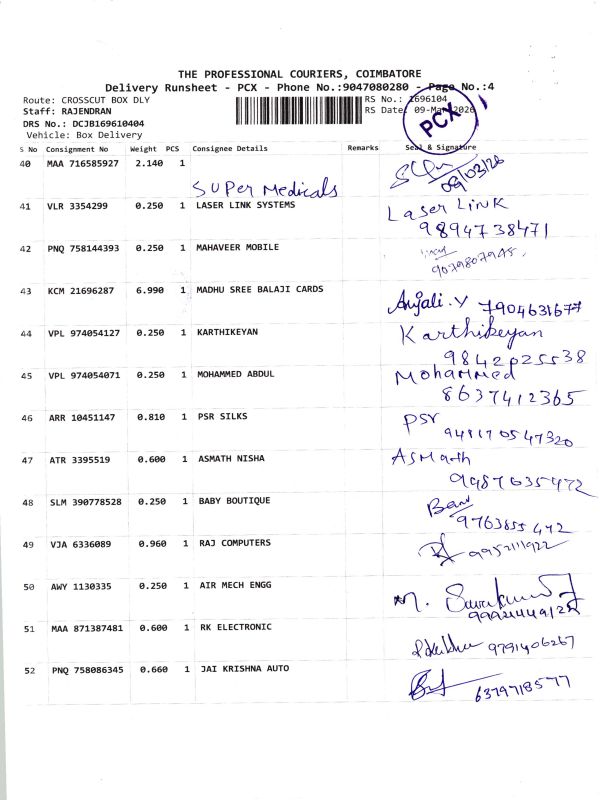 THE PROFESSIONAL COURIERS, COIMBATORE
Delivery Runsheet - PCX - Phone No.:9047080280 - Page No.:4
Route: CROSSCUT BOX DLY RS No.: 1696104
Staff: RAJENDRAN RS Date: 09-Mar-2026
DRS No.: DCJB169610404 PCX
Vehicle: Box Delivery
S No Consignment No Weight PCS Consignee Details Remarks Seal & Signature
40 MAA 716585927 2.140 1 09/03/26
SUPer Medicals
41 VLR 3354299 0.250 1 LASER LINK SYSTEMS Laser Link
9894738471
42 PNQ 758144393 0.250 1 MAHAVEER MOBILE
9079807945
43 KCM 21696287 6.990 1 MADHU SREE BALAJI CARDS Anjali.V 7904631677
44 VPL 974054127 0.250 1 KARTHIKEYAN Karthikeyan
9842025538
45 VPL 974054071 0.250 1 MOHAMMED ABDUL Mohammed
8637412365
46 ARR 10451147 0.810 1 PSR SILKS PSr
47 ATR 3395519 0.600 1 ASMATH NISHA ASMath
9987635472
48 SLM 390778528 0.250 1 BABY BOUTIQUE
49 VJA 6336089 0.960 1 RAJ COMPUTERS
50 AWY 1130335 0.250 1 AIR MECH ENGG
51 MAA 871387481 0.600 1 RK ELECTRONIC 9791406267
52 PNQ 758086345 0.660 1 JAI KRISHNA AUTO 6379718577